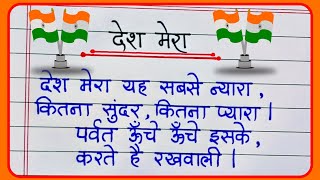 देश मेरा
देश मेरा यह सबसे न्यारा,
कितना सुंदर, कितना प्यारा।
पर्वत ऊँचे ऊँचे इसके,
करते है रखवाली।